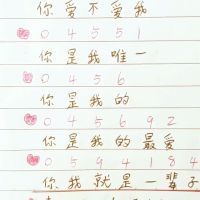 你爱不爱我
0 4 5 5 1
你是我唯一
0 4 5 6
你是我的
0 4 5 6 9 2
你是我的最爱
0 5 9 4 1 8 4
你我就是一輩子